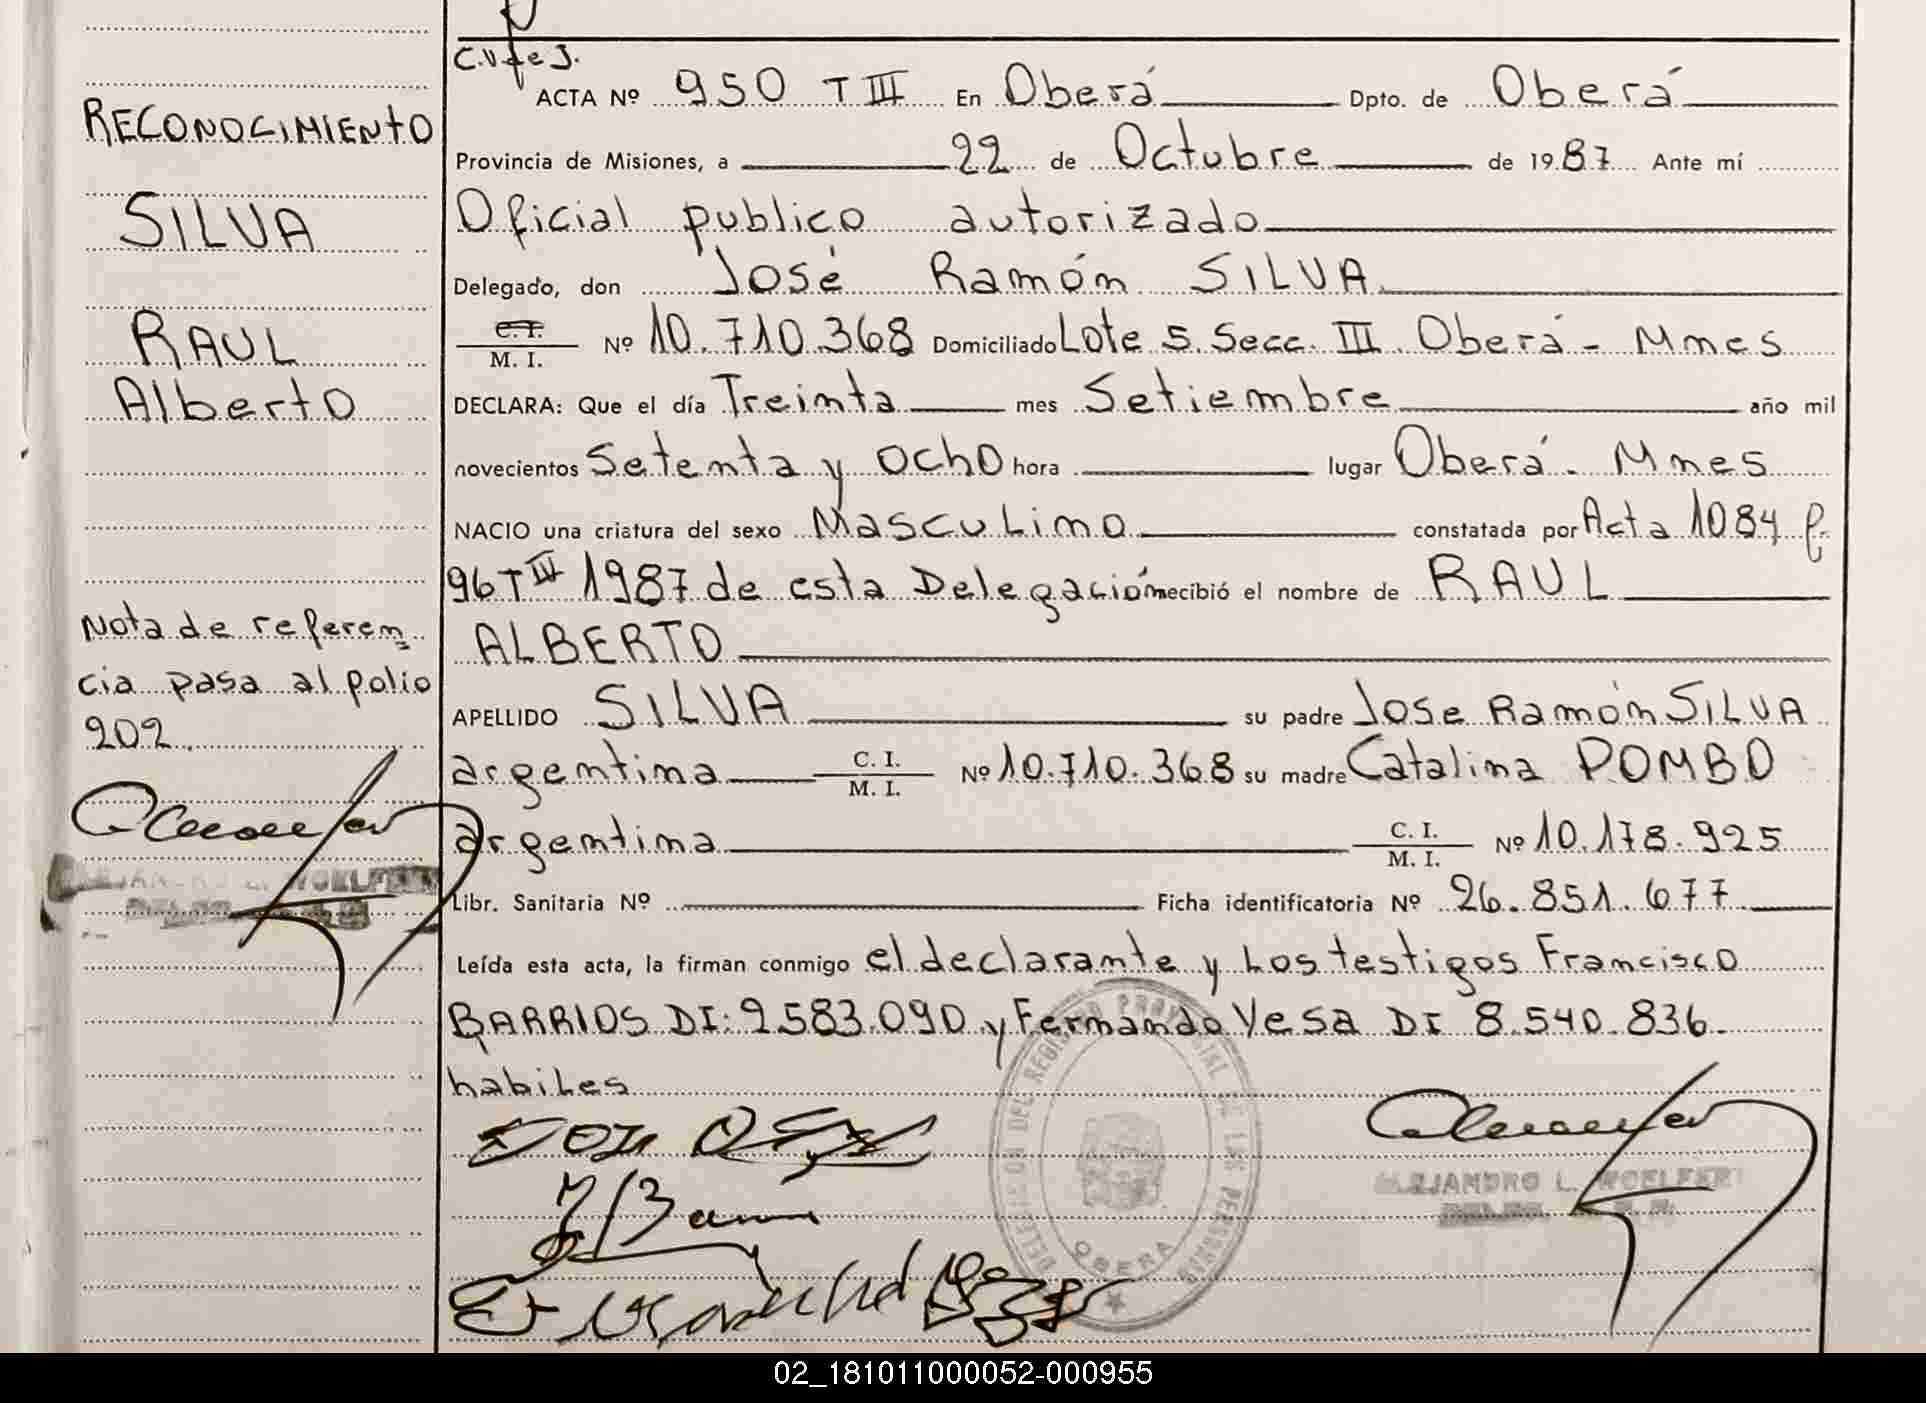 C.V de J.
RECONOCIMIENTO
SILVA
RAUL
Alberto
Nota de referen
cia pasa al folio
202.
ALEJANDRO L. WOELFERT
ACTA Nº 950 T III En Oberá Dpto. de Oberá
Provincia de Misiones, a 22 de Octubre de 1987 Ante mí
Oficial publico autorizado
Delegado, don José Ramón SILVA
C.I. M. I. Nº 10.710.368 Domiciliado Lote 5. Secc. III. Oberá - Mnes
DECLARA: Que el día Treinta mes Setiembre año mil
novecientos Setenta y Ocho hora lugar Oberá - Mnes
NACIO una criatura del sexo Masculino constatada por Acta 1084 f.
96 T III 1987 de esta Delegación recibió el nombre de RAUL
ALBERTO
APELLIDO SILVA su padre Jose Ramón SILVA
argentina C. I. M. I. Nº 10.710.368 su madre Catalina POMBO
argentina C. I. M. I. Nº 10.178.925
Libr. Sanitaria Nº Ficha identificatoria Nº 26.851.677
Leída esta acta, la firman conmigo el declarante y Los testigos Francisco
BARRIOS DI: 9.583.090 y Fernando Yesa DI 8.540.836.
habiles
DELEGACION DEL REGISTRO PROVINCIAL DE LAS PERSONAS
OBERA
ALEJANDRO L. WOELFERT
02_181011000052-000955